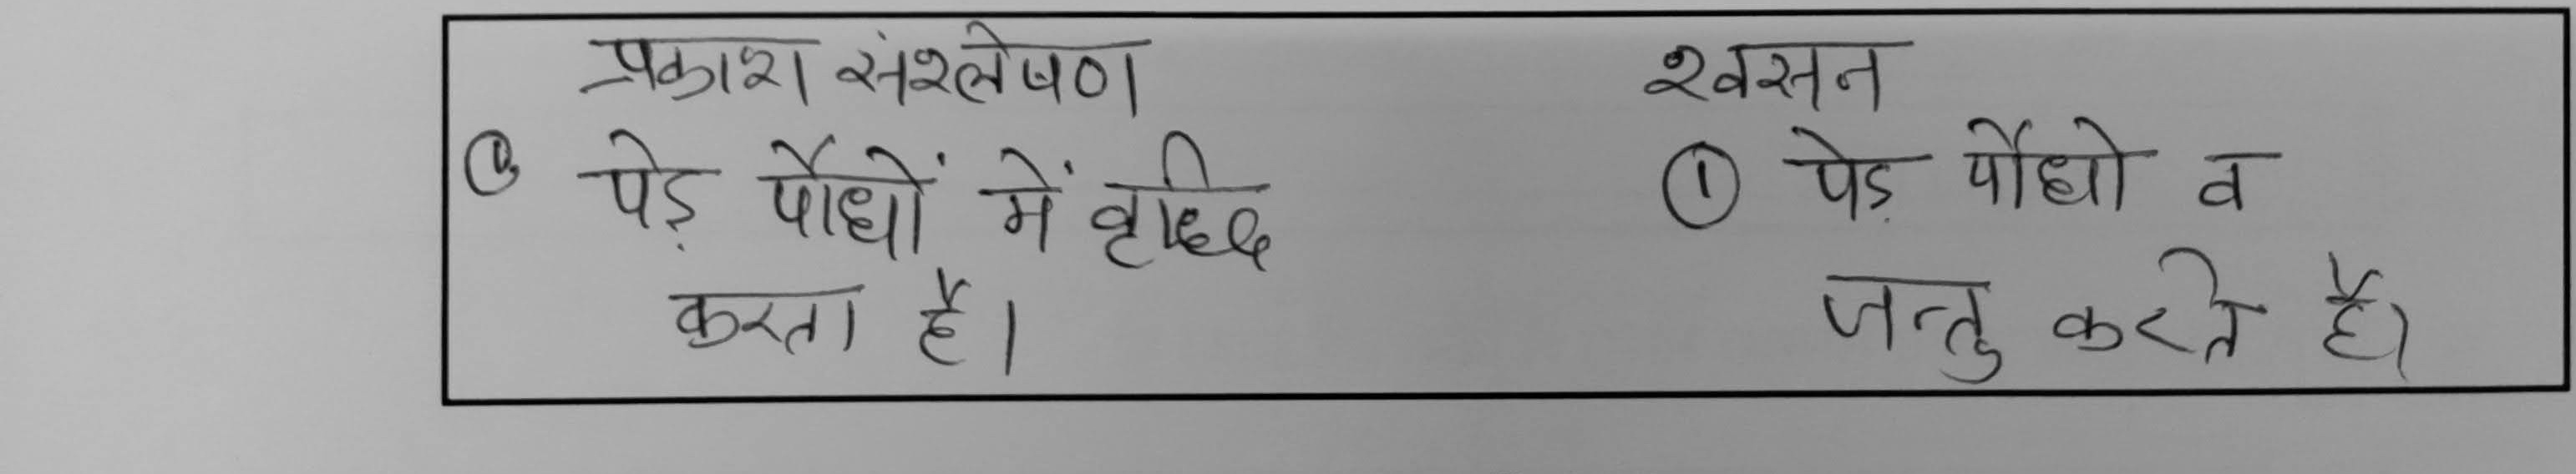 प्रकाश संश्लेषण
① पेड़ पौधों में वृद्धि
करता है।
श्वसन
① पेड़ पौधो व
जन्तु करते है।